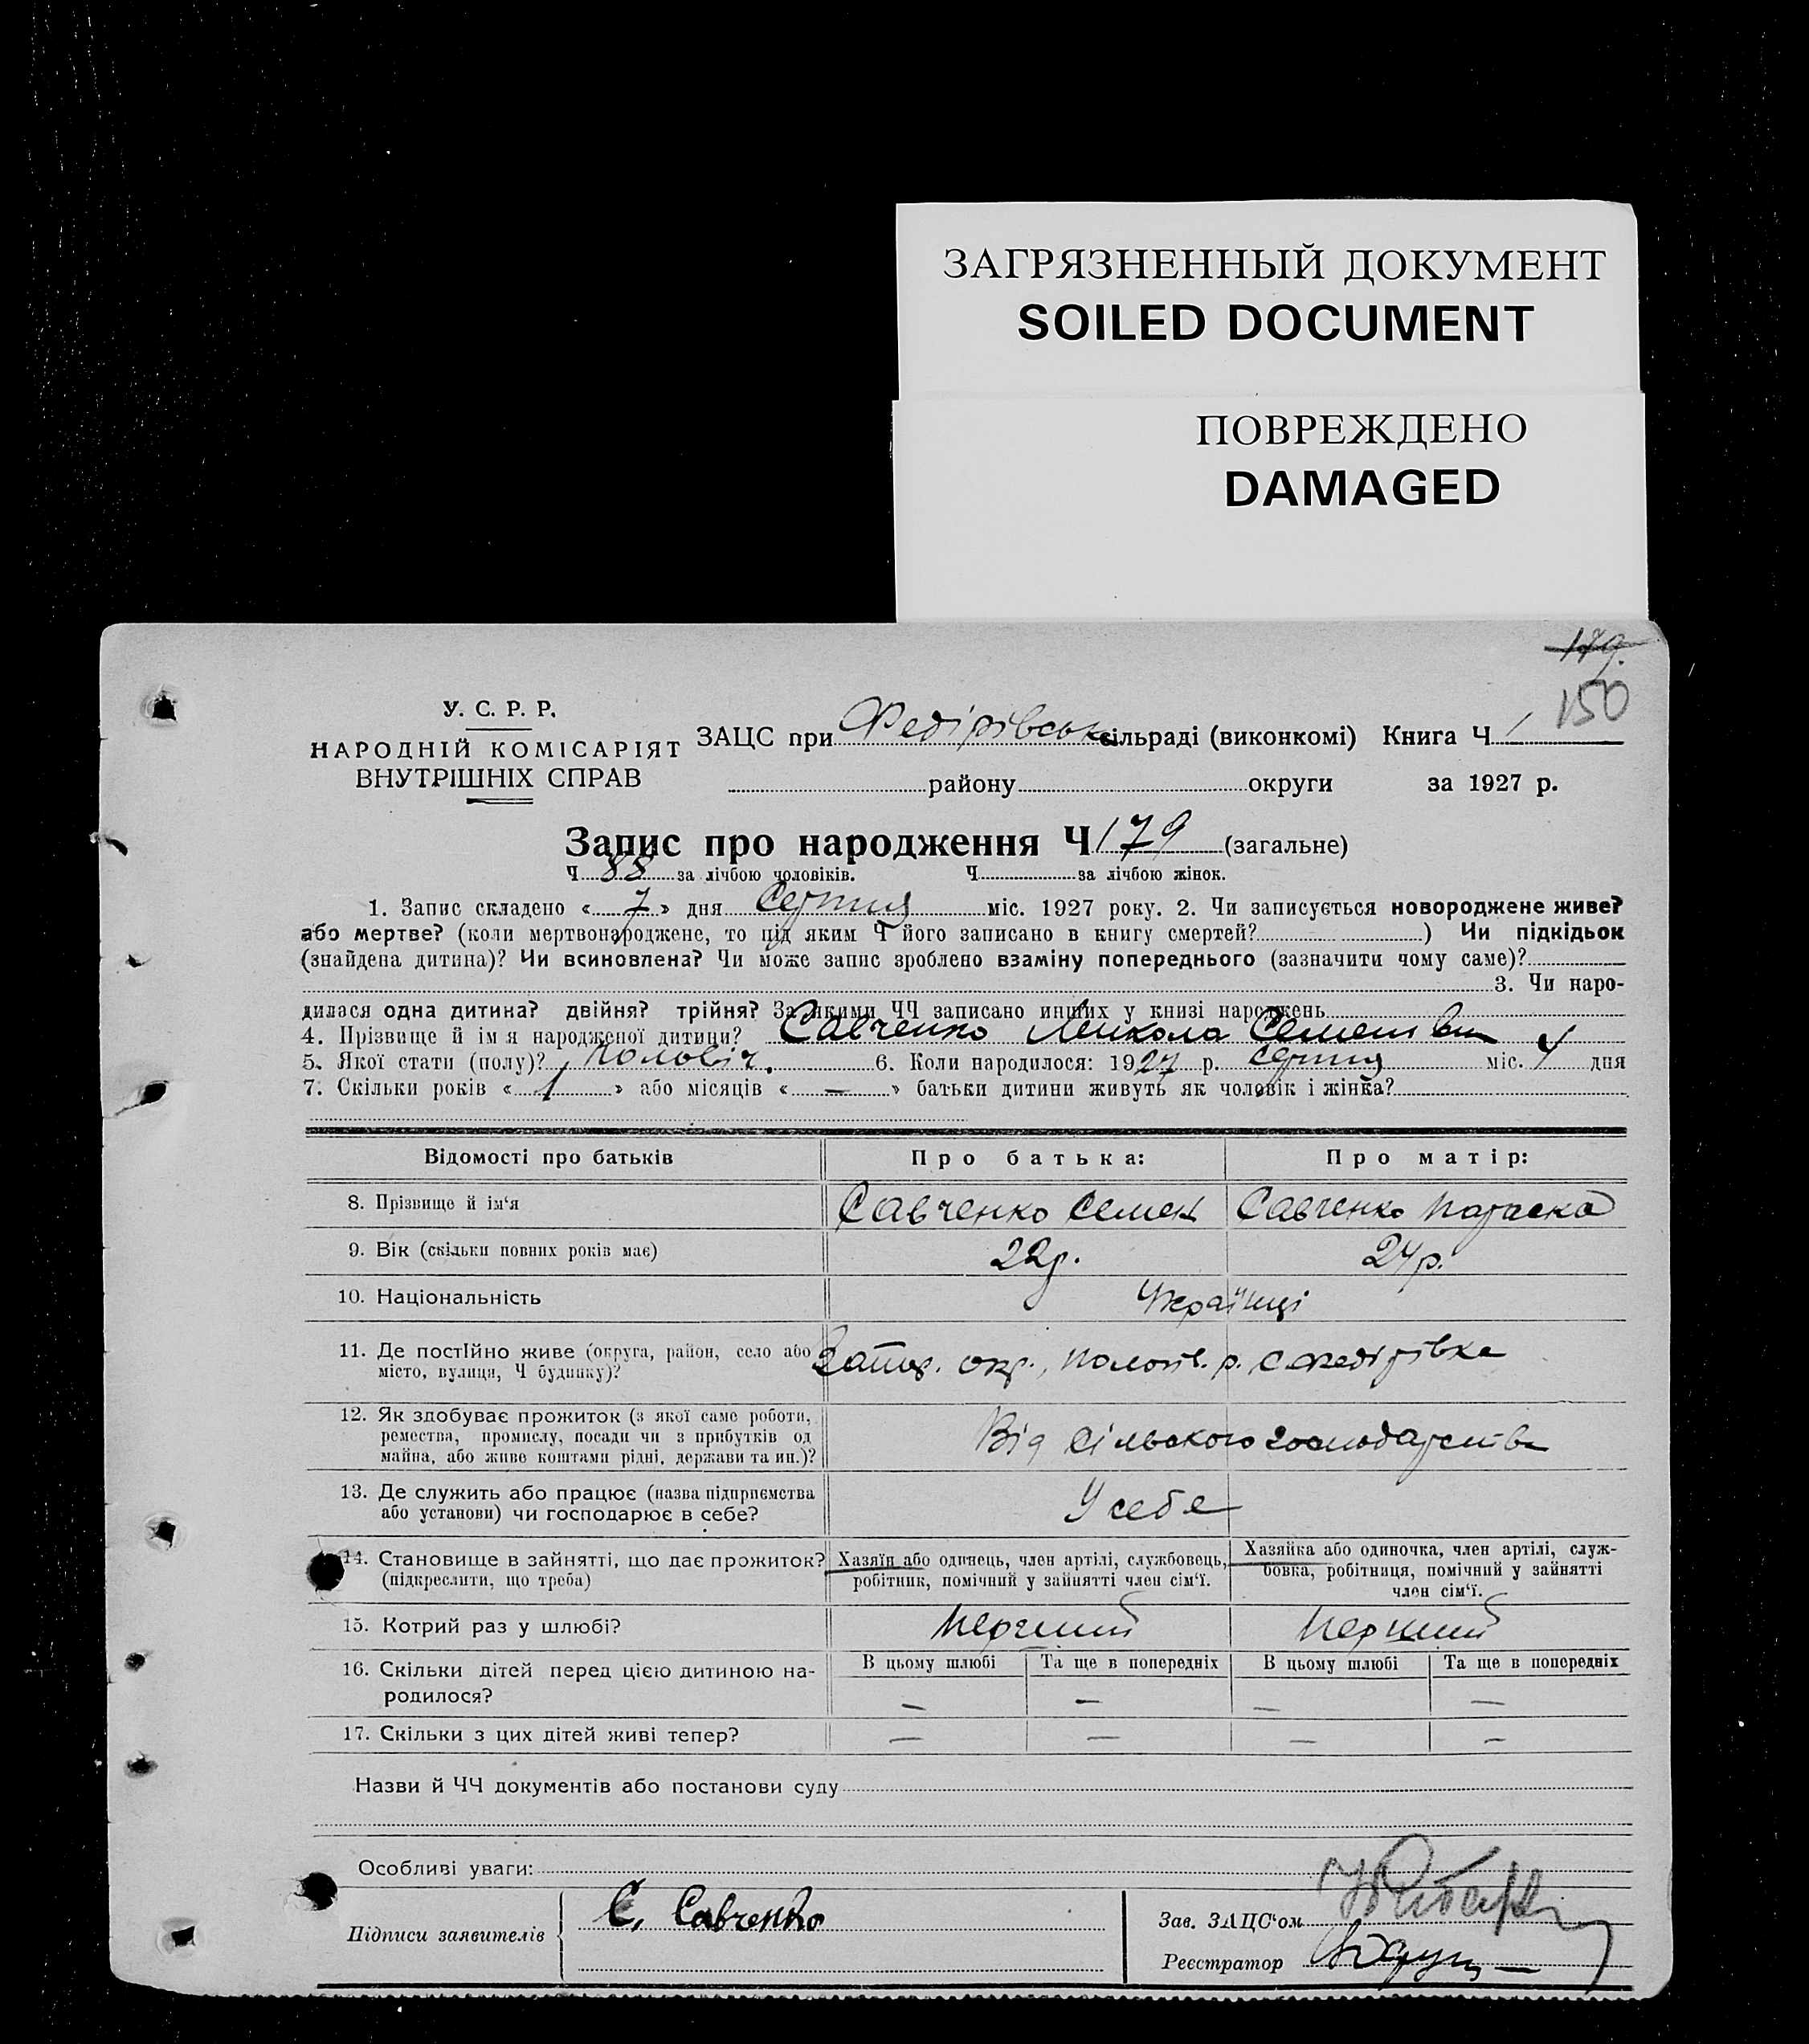 ЗАГРЯЗНЕННЫЙ ДОКУМЕНТ
SOILED DOCUMENT
ПОВРЕЖДЕНО
DAMAGED
179.
150
У. С. Р. Р.
НАРОДНІЙ КОМІСАРІЯТ
ВНУТРІШНІХ СПРАВ
ЗАЦС при Федірівськ. сільраді (виконкомі) Книга Ч 1
району округи за 1927 р.
Запис про народження Ч 179 (загальне)
Ч 88 за лічбою чоловіків. Ч за лічбою жінок.
1. Запис складено « 7 » дня Серпня міс. 1927 року. 2. Чи записується новороджене живе?
або мертве? (коли мертвонароджене, то під яким Ч його записано в книгу смертей? ) Чи підкідьок
(знайдена дитина)? Чи всиновлена? Чи може запис зроблено взаміну попереднього (зазначити чому саме)?
3. Чи наро-
дилася одна дитина? двійня? трійня? За якими ЧЧ записано инших у книзі народжень
4. Прізвище й ім я народженої дитини? Савченко Микола Семенович
5. Якої стати (полу)? Чоловіч. 6. Коли народилося: 1927 р. серпня міс. 4 дня
7. Скільки років « 1 » або місяців « — » батьки дитини живуть як чоловік і жінка?
Відомості про батьків Про батька: Про матір:
8. Прізвище й ім‘я Савченко Семен Савченко Параска
9. Вік (скільки повних років має) 22р. 24р.
10. Національність Українці
11. Де постійно живе (округа, район, село або
місто, вулиця, Ч будинку)? Запор. окр., Пологів. р. с Федірівка
12. Як здобуває прожиток (з якої саме роботи,
ремества, промислу, посади чи з прибутків од
майна, або живе коштами рідні, держави та ин.)? Від сільського господарства
13. Де служить або працює (назва підприємства
або установи) чи господарює в себе? У себе
14. Становище в зайнятті, що дає прожиток?
(підкреслити, що треба)
Хазяїн або одинець, член артілі, службовець,
робітник, помічний у зайнятті член сім‘ї.
Хазяйка або одиночка, член артілі, служ-
бовка, робітниця, помічний у зайнятті
член сім‘ї.
15. Котрий раз у шлюбі? перший перший
16. Скільки дітей перед цією дитиною на-
родилося?
В цьому шлюбі Та ще в попередніх В цьому шлюбі Та ще в попередніх
— — — —
17. Скільки з цих дітей живі тепер? — — — —
Назви й ЧЧ документів або постанови суду
Особливі уваги:
Підписи заявителів С. Савченко
Зав. ЗАЦС‘ом
Реєстратор